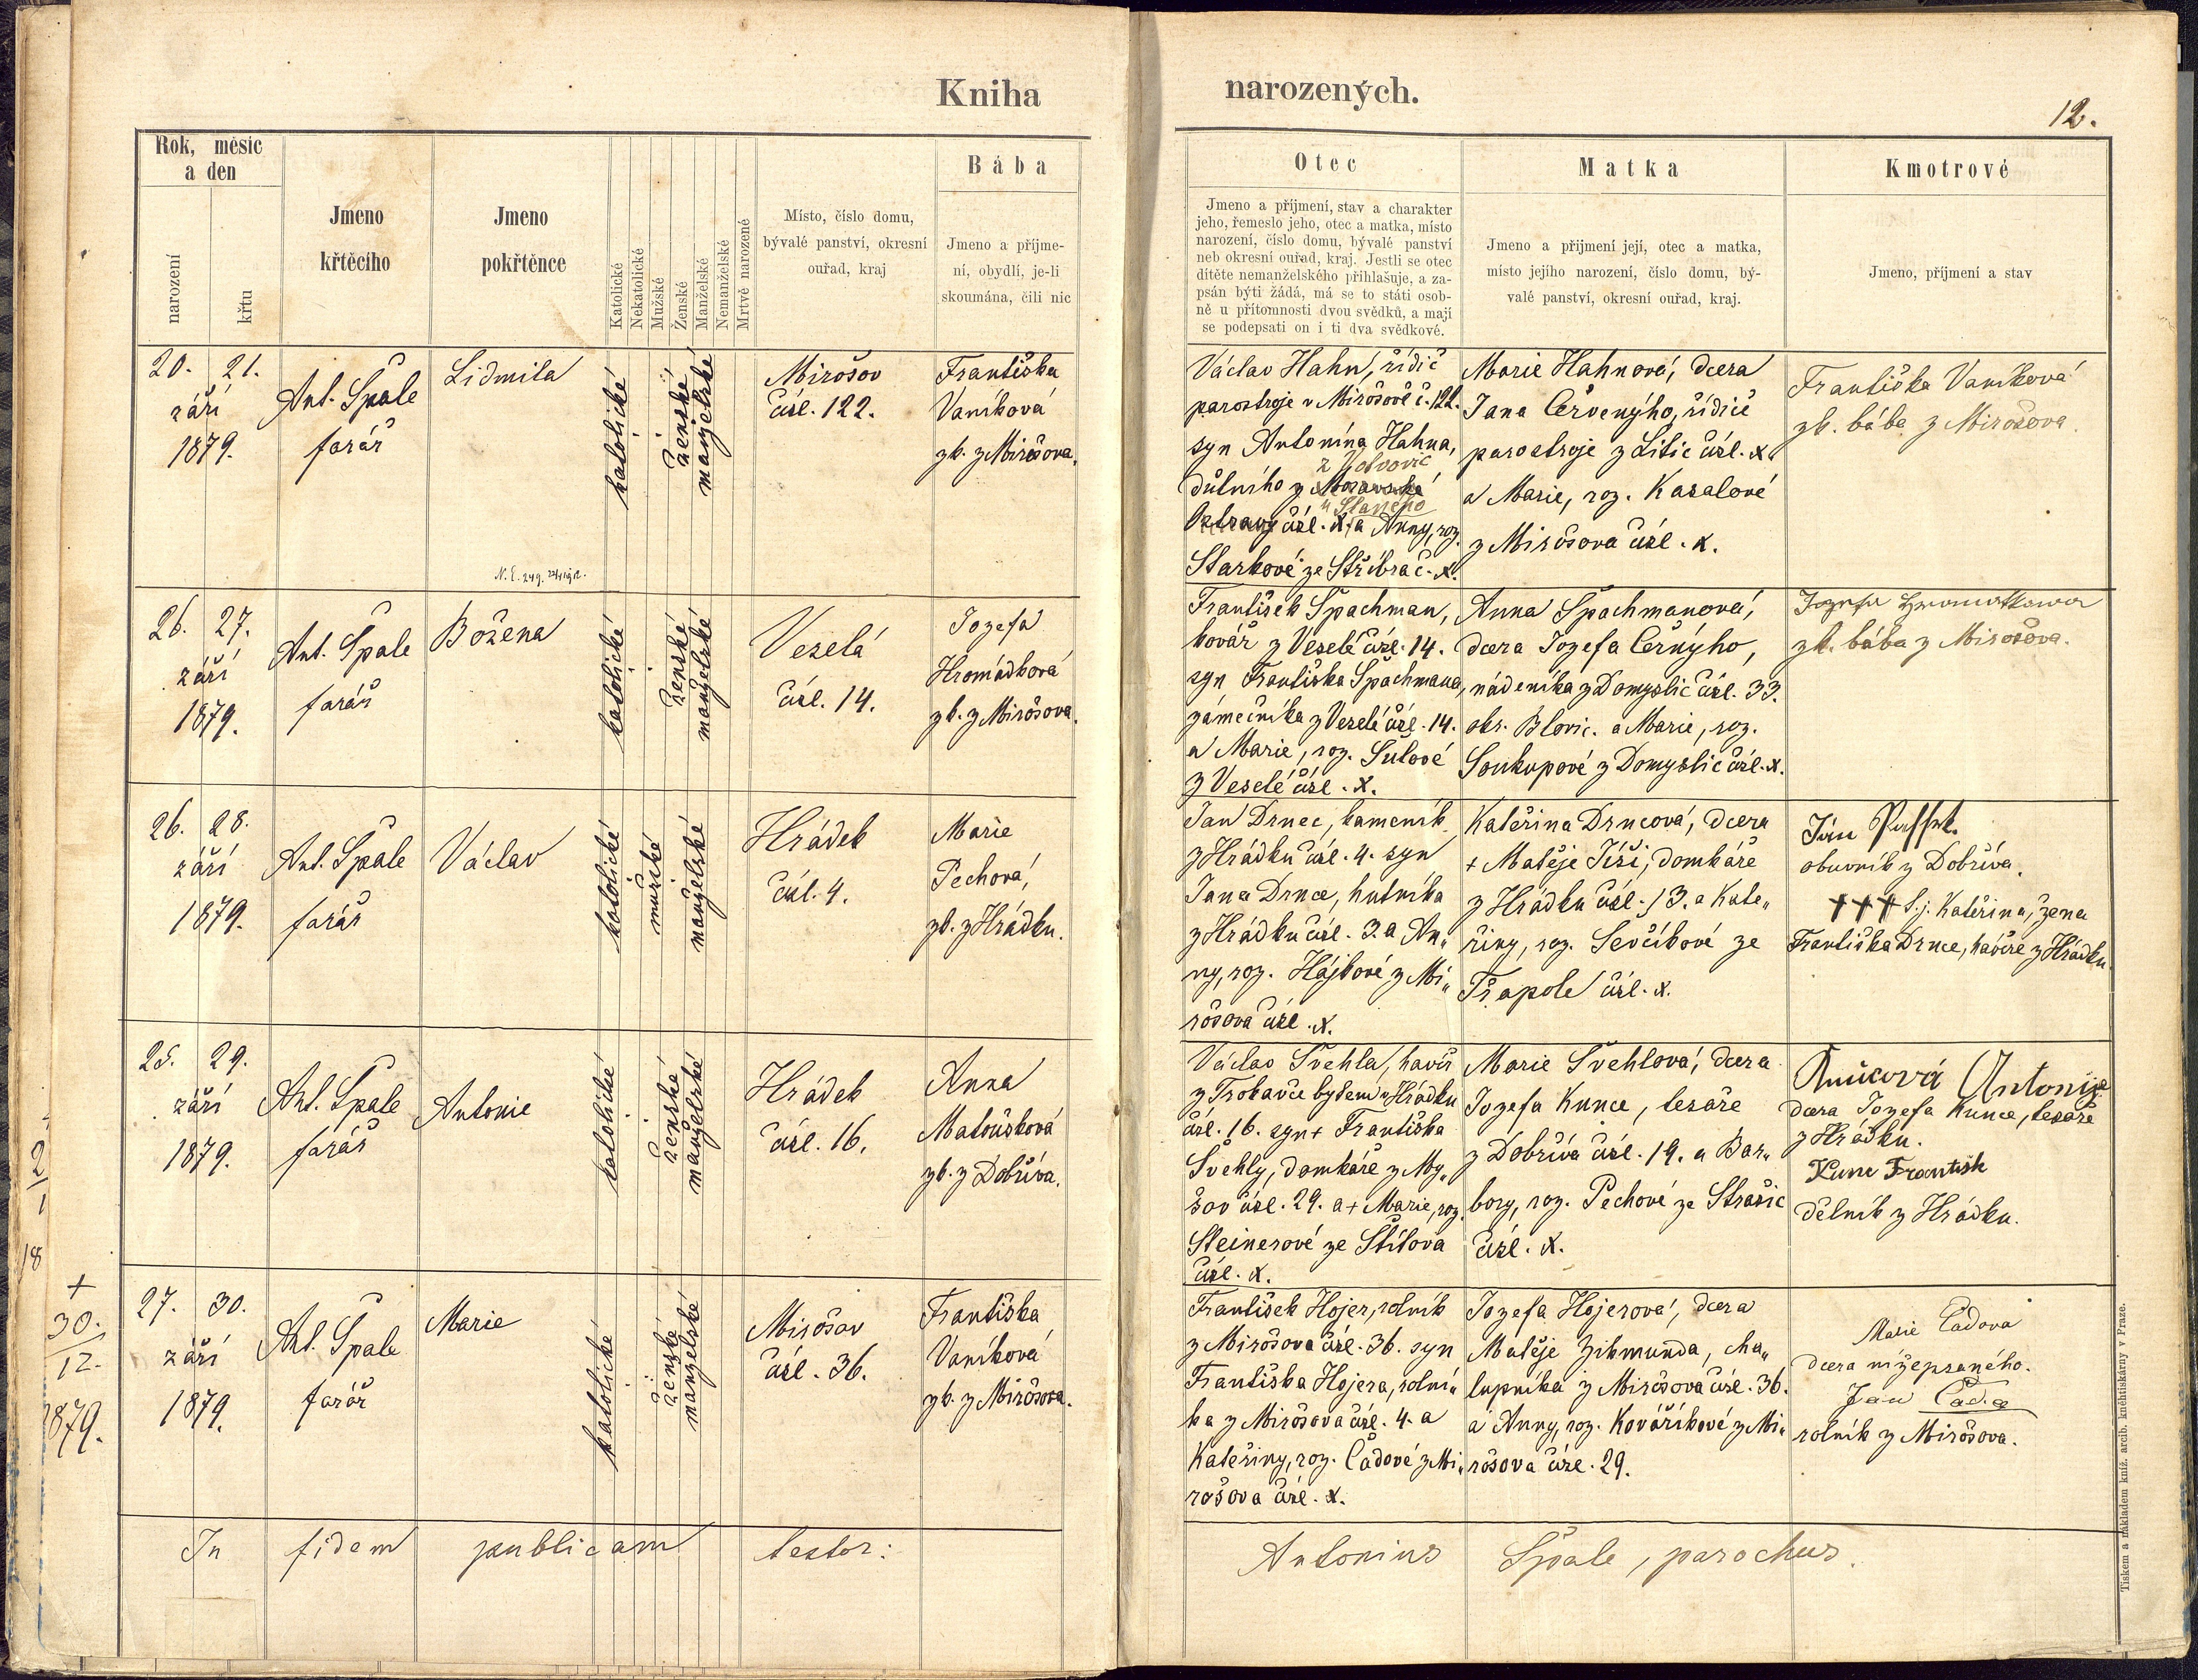 Kniha narozených.
12.
Rok, měsíc
a den
narození
křtu
Jmeno
křtěcího
Jmeno
pokřtěnce
Katolické
Nekatolické
Mužské
Ženské
Manželské
Nemanželské
Mrtvě narozené
Místo, číslo domu,
bývalé panství, okresní
ouřad, kraj
Bába
Jmeno a příjme-
ní, obydlí, je-li
skoumána, čili nic
Otec
Jmeno a příjmení, stav a charakter
jeho, řemeslo jeho, otec a matka, místo
narození, číslo domu, bývalé panství
neb okresní ouřad, kraj. Jestli se otec
dítěte nemanželského přihlašuje, a za-
psán býti žádá, má se to státi osob-
ně u přítomnosti dvou svědků, a mají
se podepsati on i ti dva svědkové.
Matka
Jmeno a přijmení její, otec a matka,
místo jejího narození, číslo domu, bý-
valé panství, okresní ouřad, kraj.
Kmotrové
Jmeno, příjmení a stav
20. 21.
září
1879.
Ant. Špale
farář
Lidmila
katolické
ženské
manželské
Mirošov
čísl. 122.
Františka
Vaníková
zk. z Mirošova.
Václav Hahn, řídič
parostroje v Mirošově č. 122.
syn Antonína Hahna,
důlního z Moravské
Ostravy čísl. X. a Anny, roz.
Starkové ze Stříbra č. X.
Marie Hahnová, dcera
Jana Červenýho, řídiče
parostroje z Litic čísl. X.
a Marie, roz. Kasalové
z Mirošova čísl. X.
Františka Vaníková
zk. bába z Mirošova.
26. 27.
září
1879.
Ant. Špale
farář
Božena
katolické
ženské
manželské
Veselá
čísl. 14.
Jozefa
Hromádková
zk. z Mirošova.
František Špachman,
kovář z Veselé čísl. 14.
syn Františka Špachmana,
zámečníka z Veselé čísl. 14.
a Marie, roz. Šulové
z Veselé čísl. X.
Anna Špachmanová,
dcera Jozefa Černýho,
nádeníka z Domyslic čísl. 33.
okr. Blovic. a Marie, roz.
Soukupové z Domyslic čísl. X.
Jozefa Hromatkowa
zk. bába z Mirošova.
26. 28.
září
1879.
Ant. Špale
farář
Václav
katolické
mužské
manželské
Hrádek
čísl. 4.
Marie
Pechová,
zk. z Hrádku.
Jan Drnec, kameník
z Hrádku čísl. 4. syn
Jana Drnce, hutníka
z Hrádku čísl. 3. a An„
ny, roz. Hájkové z Mi„
rošova čísl. X.
Kateřina Drncová, dcera
+ Matěje Jíši, domkáře
z Hrádku čísl. 13. a Kate„
řiny, roz. Ševčíkové ze
Třapole čísl. X.
Jan
obuvník z Dobříva.
††† S. j. Kateřina, žena
Františka Drnce, havíře z Hrádku.
25. 29.
září
1879.
Ant. Špale
farář
Antonie
katolické
ženské
manželské
Hrádek
čísl. 16.
Anna
Matoušková
zk. z Dobříva.
Václav Švehla, havíř
z Trokavce bydlení v Hrádku
čísl. 16. syn + Františka
Švehly, domkáře z My„
šov čísl. 29. a + Marie, roz.
Steinerové ze Štítova
čísl. X.
Marie Švehlová, dcera
Jozefa Kunce, tesaře
z Dobříva čísl. 19. a Bar„
bory, roz. Pechové ze Strašic
čísl. X.
Antonije
dcera Jozefa Kunce, tesaře
z Hrádku.
Kunc František
dělník z Hrádku.
+
30.
12.
1879.
27. 30.
září
1879.
Ant. Špale
farář
Marie
katolické
ženské
manželské
Mirošov
čísl. 36.
Františka
Vaníková
zk. z Mirošova.
František Hojer, rolník
z Mirošova čísl. 36. syn
Františka Hojera, rolní„
ka z Mirošova čísl. 4. a
Kateřiny, roz. Čadové z Mi„
rošova čísl. X.
Jozefa Hojerová, dcera
Matěje Zikmunda, cha„
lupníka z Mirošova čísl. 36.
a Anny, roz. Kovaříkové z Mi„
rošova čísl. 29.
Marie Čadova
dcera nížepsaného.
Jan Čada
rolník z Mirošova.
In fidem publicam testor:
Antonius Špale, parochus.
Tiskem a nákladem kníž. arcib. kněhtiskárny v Praze.